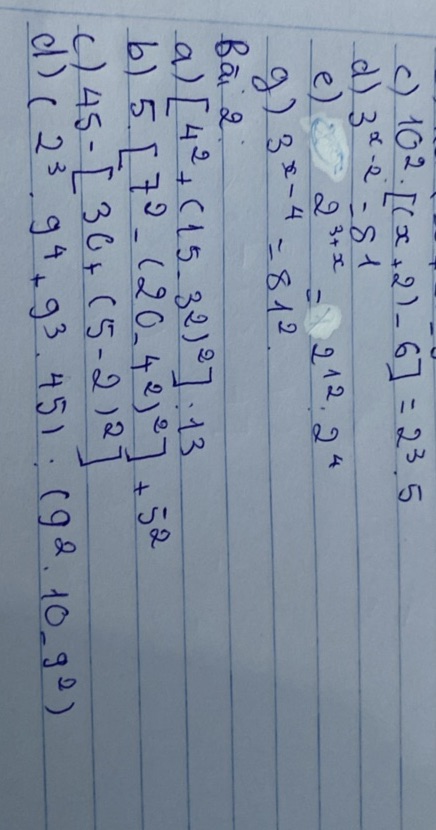 c) 10². [(x+2) - 6] = 2³.5
d) 3ˣ⁻² = 81
e) 2³⁺ˣ = 2¹².2⁴
g) 3ˣ⁻⁴ = 81².
Bài 2:
a) [4² + (15 - 3²)²] . 13
b) 5.[7² - (20 - 4²)²] + 5²
c) 45 - [36 + (5 - 2)²]
d) (2³. 9⁴ + 9³. 45) : (9². 10 - 9²)